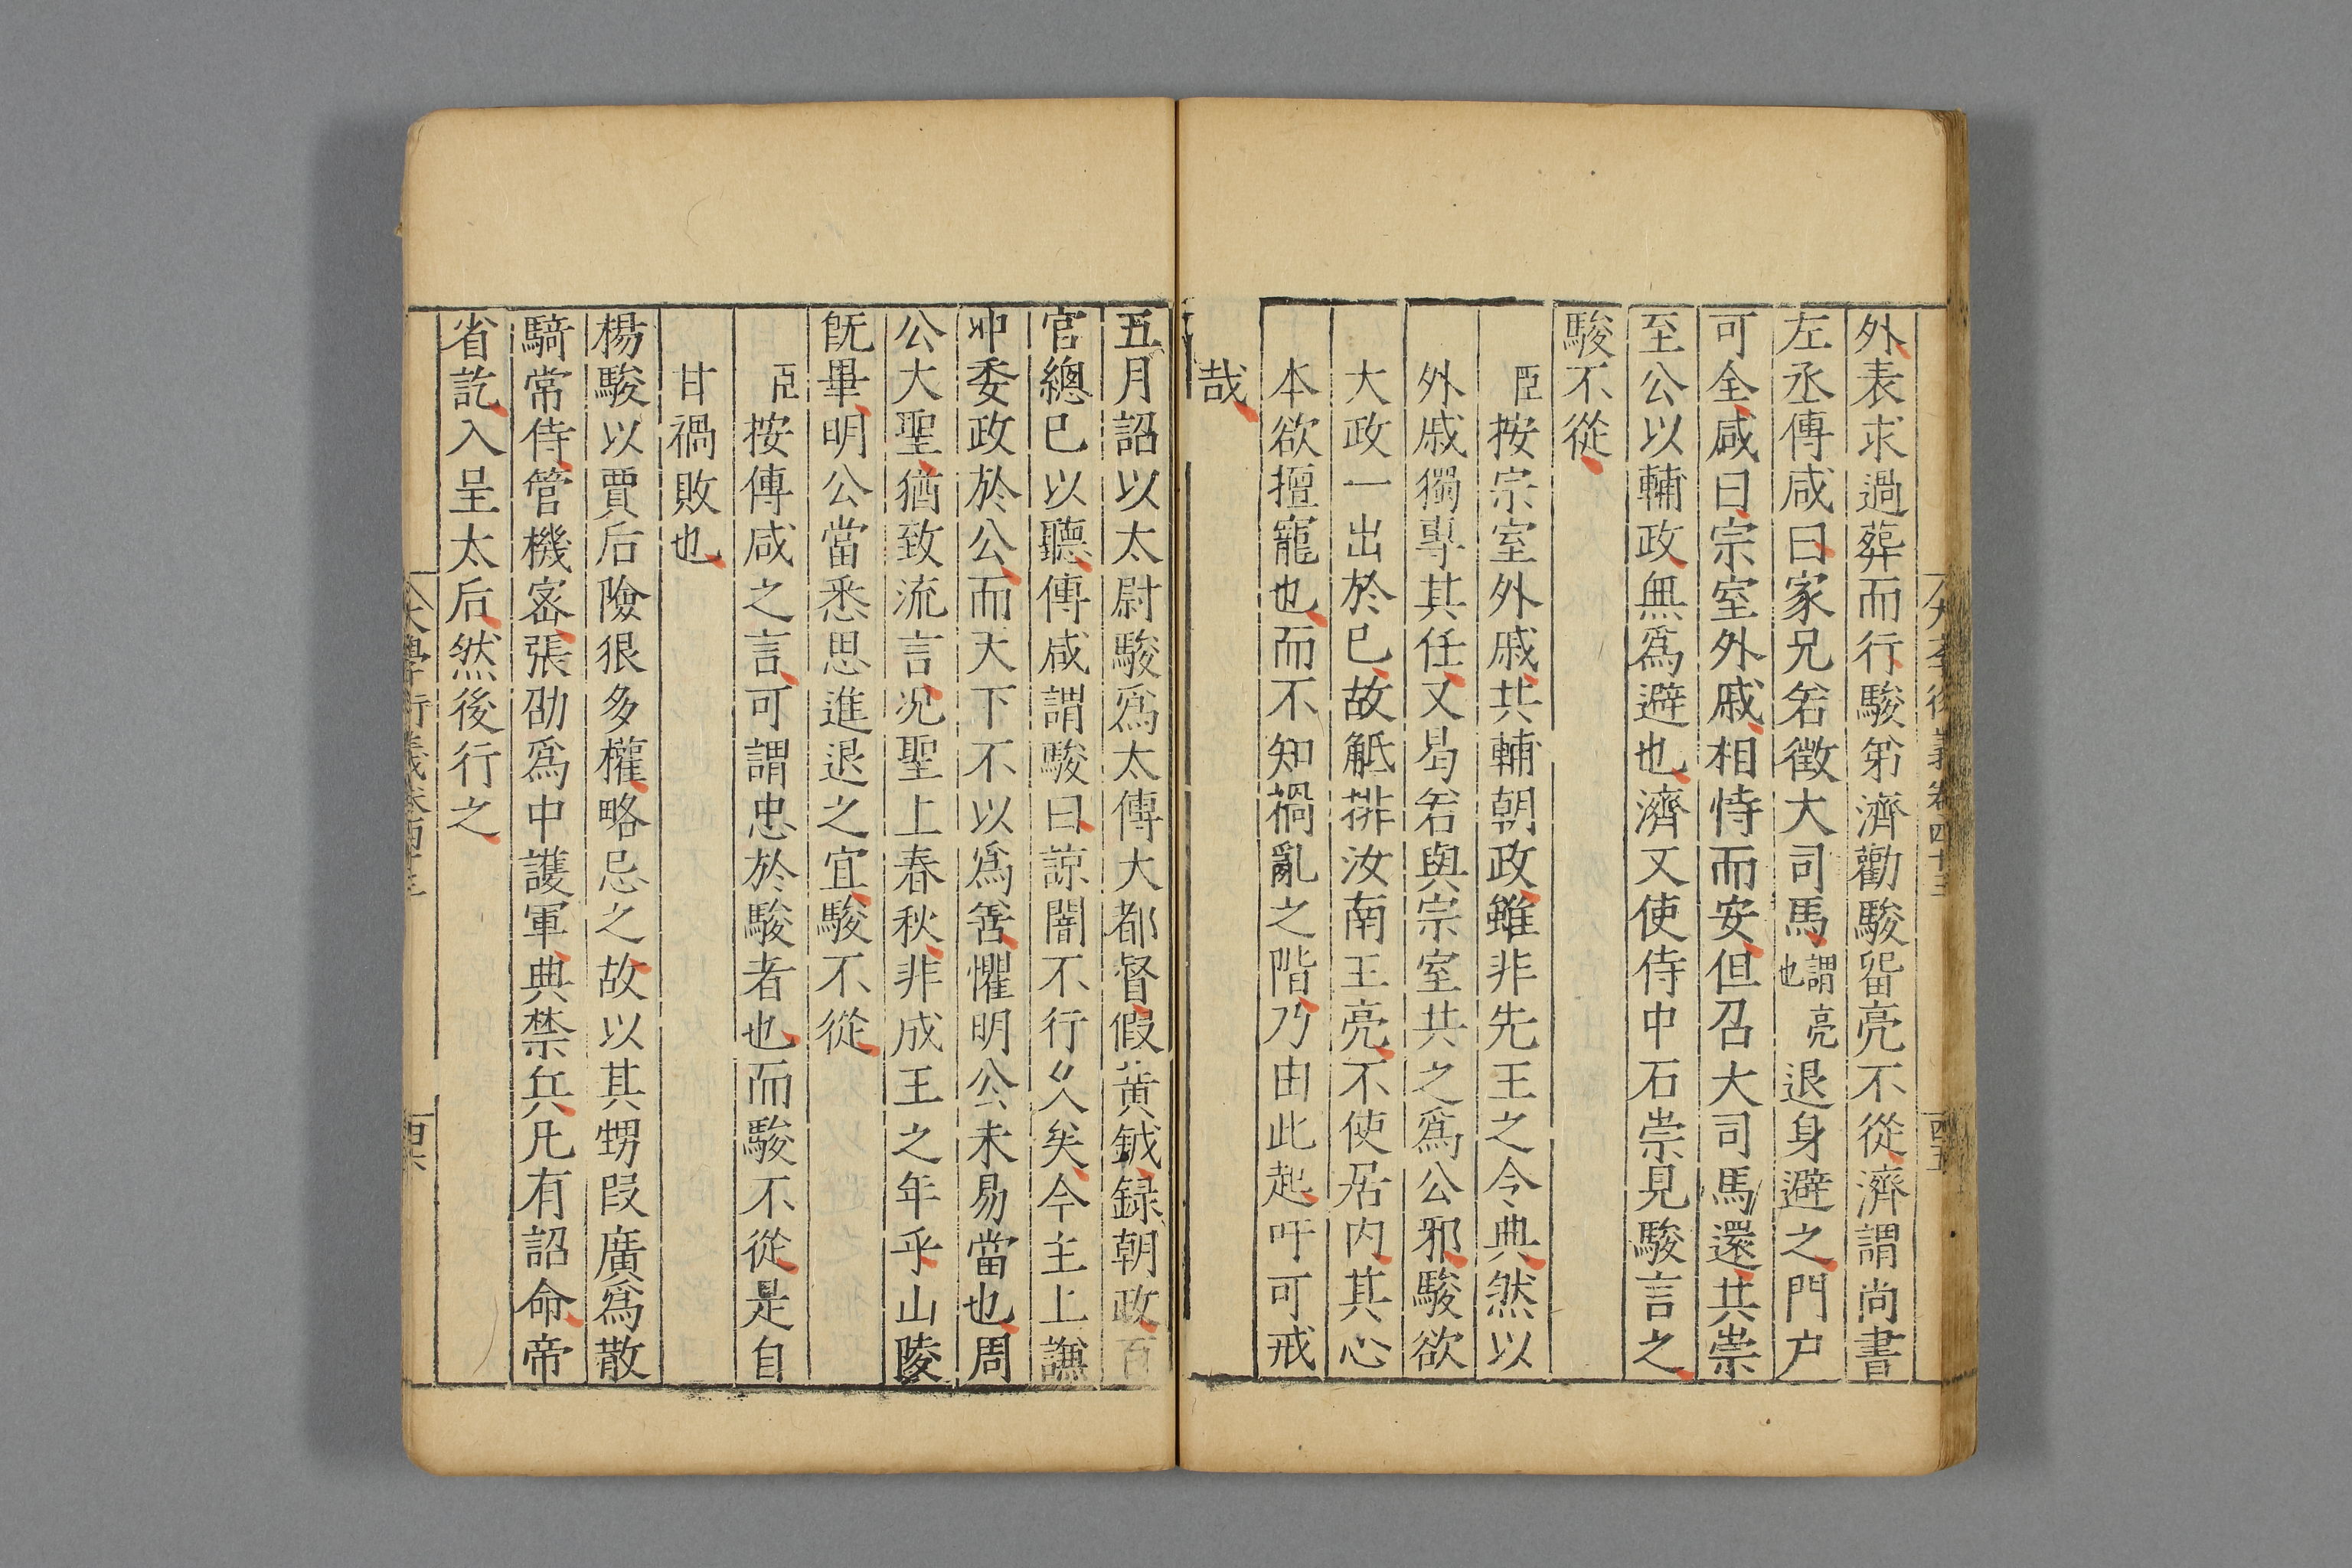 外表求過葬而行駿弟濟勸駿留亮不從濟謂尚書
左丞傅咸曰家兄若徵大司馬謂亮也退身避之門户
可全咸曰宗室外戚相恃而安但召大司馬還共崇
至公以輔政無爲避也濟又使侍中石崇見駿言之
駿不從
臣按宗室外戚共輔朝政雖非先王之令典然以
外戚獨專其任又曷若與宗室共之爲公邪駿欲
大政一出於已故觝排汝南王亮不使居内其心
本欲擅寵也而不知禍亂之階乃由此起吁可戒
哉
五月詔以太尉駿爲太傅大都督假黄鉞録朝政百
官總已以聽傅咸謂駿曰諒闇不行久矣今主上謙
冲委政於公而天下不以爲善懼明公未易當也周
公大聖猶致流言况聖上春秋非成王之年乎山陵
旣畢明公當悉思進退之宜駿不從
臣按傅咸之言可謂忠於駿者也而駿不從是自
甘禍敗也
楊駿以賈后險狠多權略忌之故以其甥叚廣爲散
騎常侍管機宻張劭爲中護軍典禁兵凡有詔命帝
省訖入呈太后然後行之